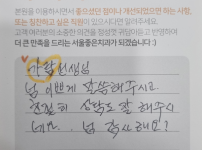 본원을 이용하시면서 좋으셨던 점이나 개선되었으면 하는 사항,
또는 칭찬하고 싶은 직원이 있으시다면 알려주세요.
고객 여러분의 소중한 의견을 정성껏 귀담아듣고 반영하여
더 큰 만족을 드리는 서울좋은치과가 되겠습니다 :)
선생님
넘 이쁘게 말씀해주시고
친절히 상담도 잘 해주시
네요.. 넘 감사해요?